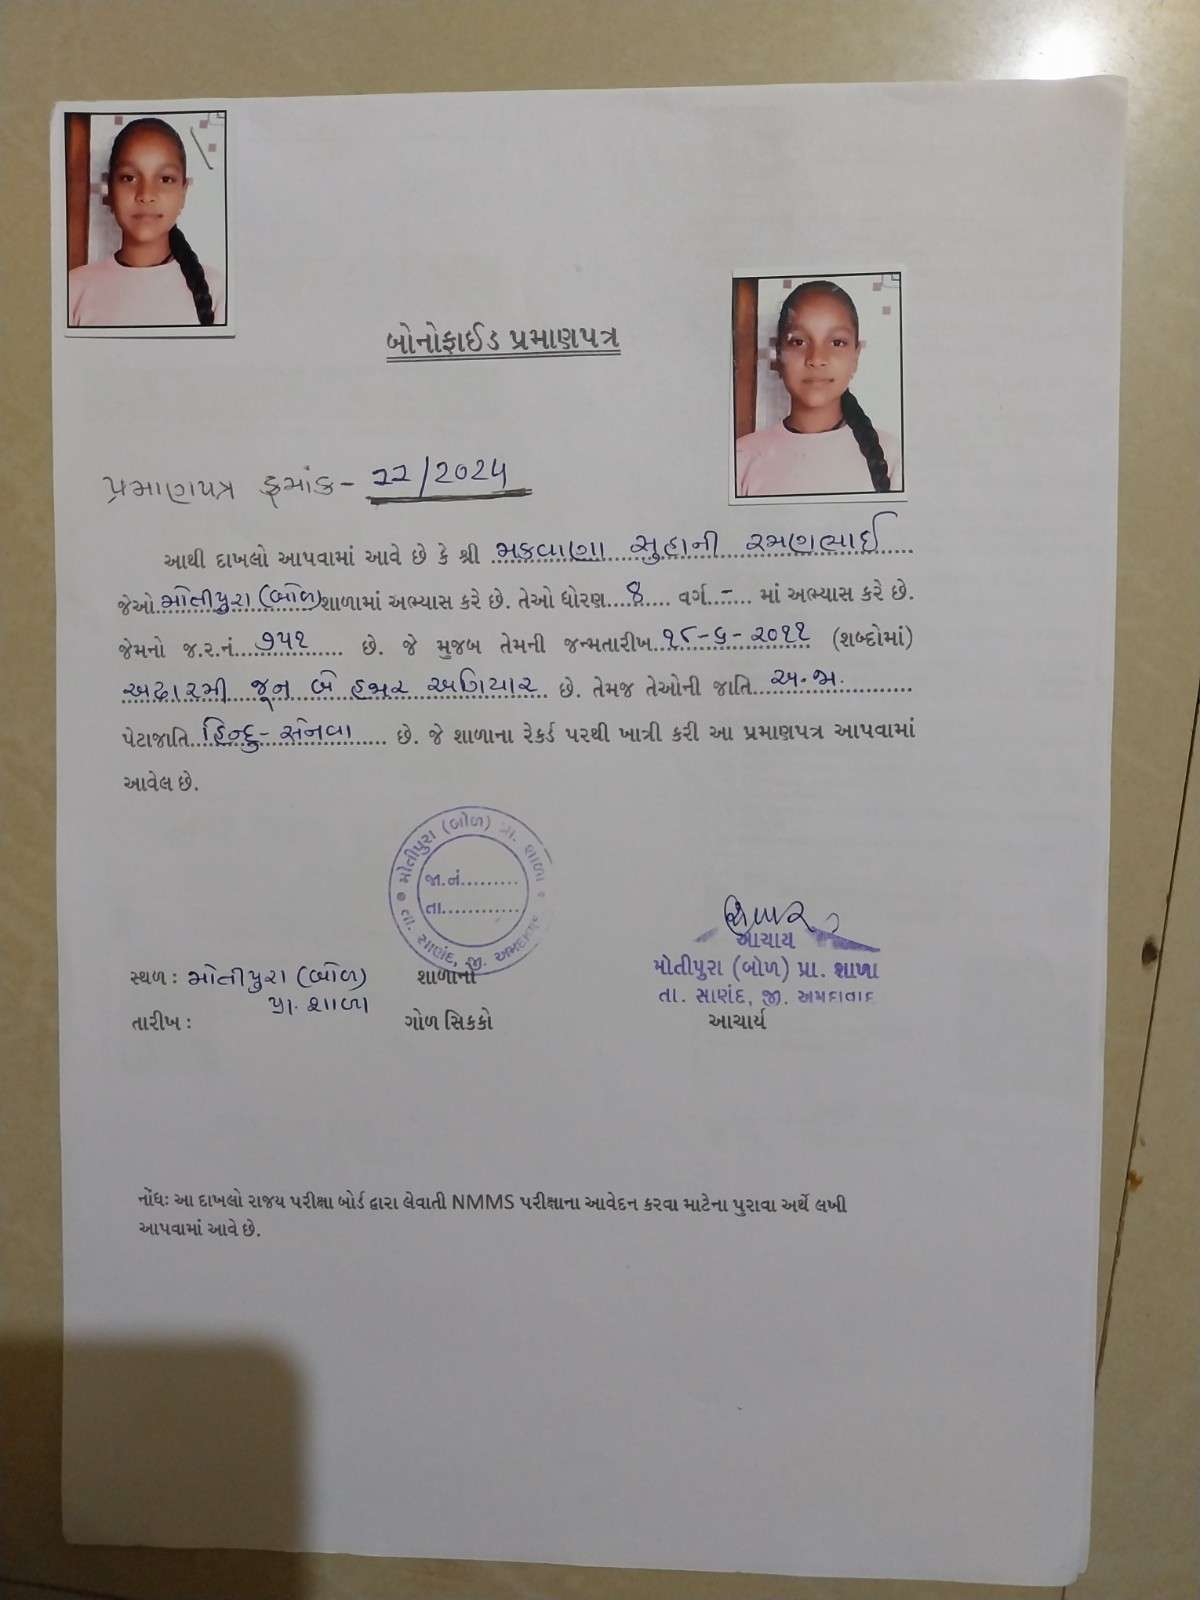 બોનોફાઈડ પ્રમાણપત્ર
પ્રમાણપત્ર ક્રમાંક - 22/2024
આથી દાખલો આપવામાં આવે છે કે શ્રી મકવાણા સુહાની રમણભાઈ
જેઓ મોતીપુરા (બોળ) શાળામાં અભ્યાસ કરે છે. તેઓ ધોરણ 8 વર્ગ - માં અભ્યાસ કરે છે.
જેમનો જ.ર.નં. ૭૫૧ છે. જે મુજબ તેમની જન્મતારીખ ૧૮-૬-૨૦૧૧ (શબ્દોમાં)
અઢારમી જૂન બે હજાર અગિયાર છે. તેમજ તેઓની જાતિ અ.જા.
પેટાજાતિ હિન્દુ-સેનવા છે. જે શાળાના રેકર્ડ પરથી ખાત્રી કરી આ પ્રમાણપત્ર આપવામાં
આવેલ છે.
મોતીપુરા (બોળ) પ્રા. શાળા
જા.નં.........
તા............
તા. સાણંદ, જી. અમદાવાદ
આચાર્ય
મોતીપુરા (બોળ) પ્રા. શાળા
તા. સાણંદ, જી. અમદાવાદ
સ્થળ : મોતીપુરા (બોળ) પ્રા. શાળા
શાળાનો
તારીખ :
ગોળ સિક્કો
આચાર્ય
નોંધઃ આ દાખલો રાજય પરીક્ષા બોર્ડ દ્વારા લેવાતી NMMS પરીક્ષાના આવેદન કરવા માટેના પુરાવા અર્થે લખી
આપવામાં આવે છે.